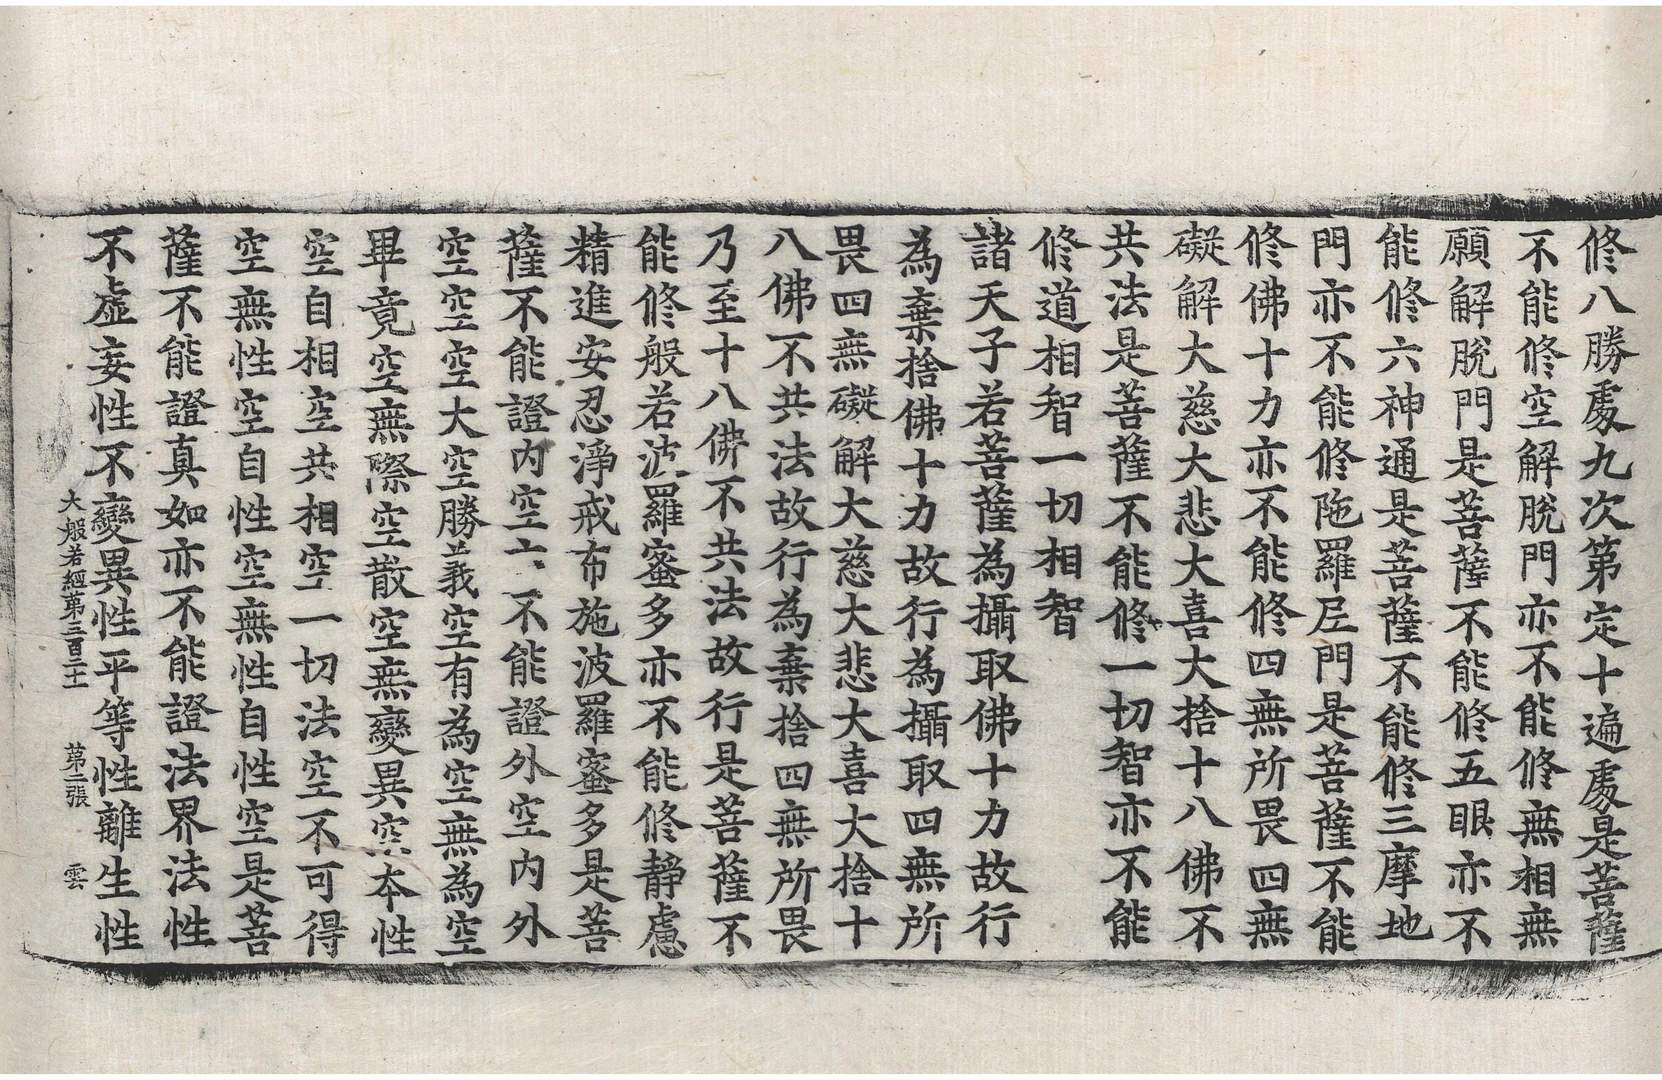 修八勝處九次第定十遍處是菩薩
不能修空解脫門亦不能修無相無
願解脫門是菩薩不能修五眼亦不
能修六神通是菩薩不能修三摩地
門亦不能修陁羅尼門是菩薩不能
修佛十力亦不能修四無所畏四無
礙解大慈大悲大喜大捨十八佛不
共法是菩薩不能修一切智亦不能
修道相智一切相智
諸天子若菩薩為攝取佛十力故行
為棄捨佛十力故行為攝取四無所
畏四無礙解大慈大悲大喜大捨十
八佛不共法故行為棄捨四無所畏
乃至十八佛不共法故行是菩薩不
能修般若波羅蜜多亦不能修靜慮
精進安忍淨戒布施波羅蜜多是菩
薩不能證內空亦不能證外空內外
空空空大空勝義空有為空無為空
畢竟空無際空散空無變異空本性
空自相空共相空一切法空不可得
空無性空自性空無性自性空是菩
薩不能證真如亦不能證法界法性
不虛妄性不變異性平等性離生性
大般若經第三百二十一 第二張 雲